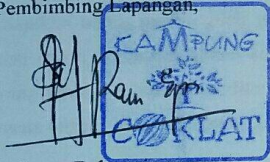 Pembimbing Lapangan,
KAMPUNG
COKLAT